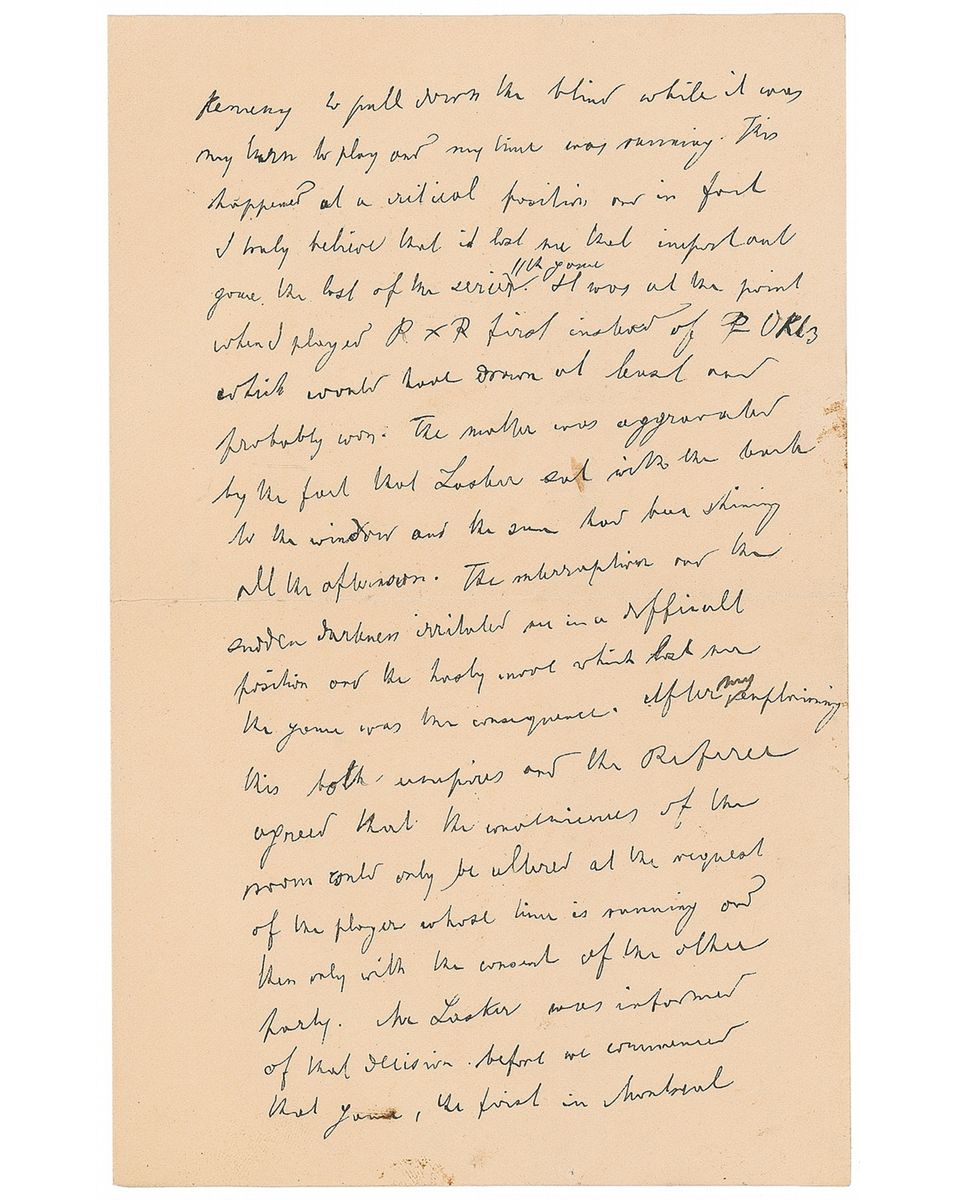 Kemeny to pull down the blind while it was
my turn to play and my time was running. This
happened at a critical position and in fact
I truly believe that it lost me that important
game, the last of the series 11th game. It was at the point
when I played R x R first instead of R QKt3
which would have drawn at least and
probably won. The matter was aggravated
by the fact that Lasker sat with the back
to the window and the sun had been shining
all the afternoon. The interruption and the
sudden darkness irritated me in a difficult
position and the hasty move which lost me
the game was the consequence. After my explaining
this both umpires and the Referee
agreed that the conveniences of the
room could only be altered at the request
of the player whose time is running and
then only with the consent of the other
party. Mr Lasker was informed
of that decision before we commenced
that game, the first in Montreal